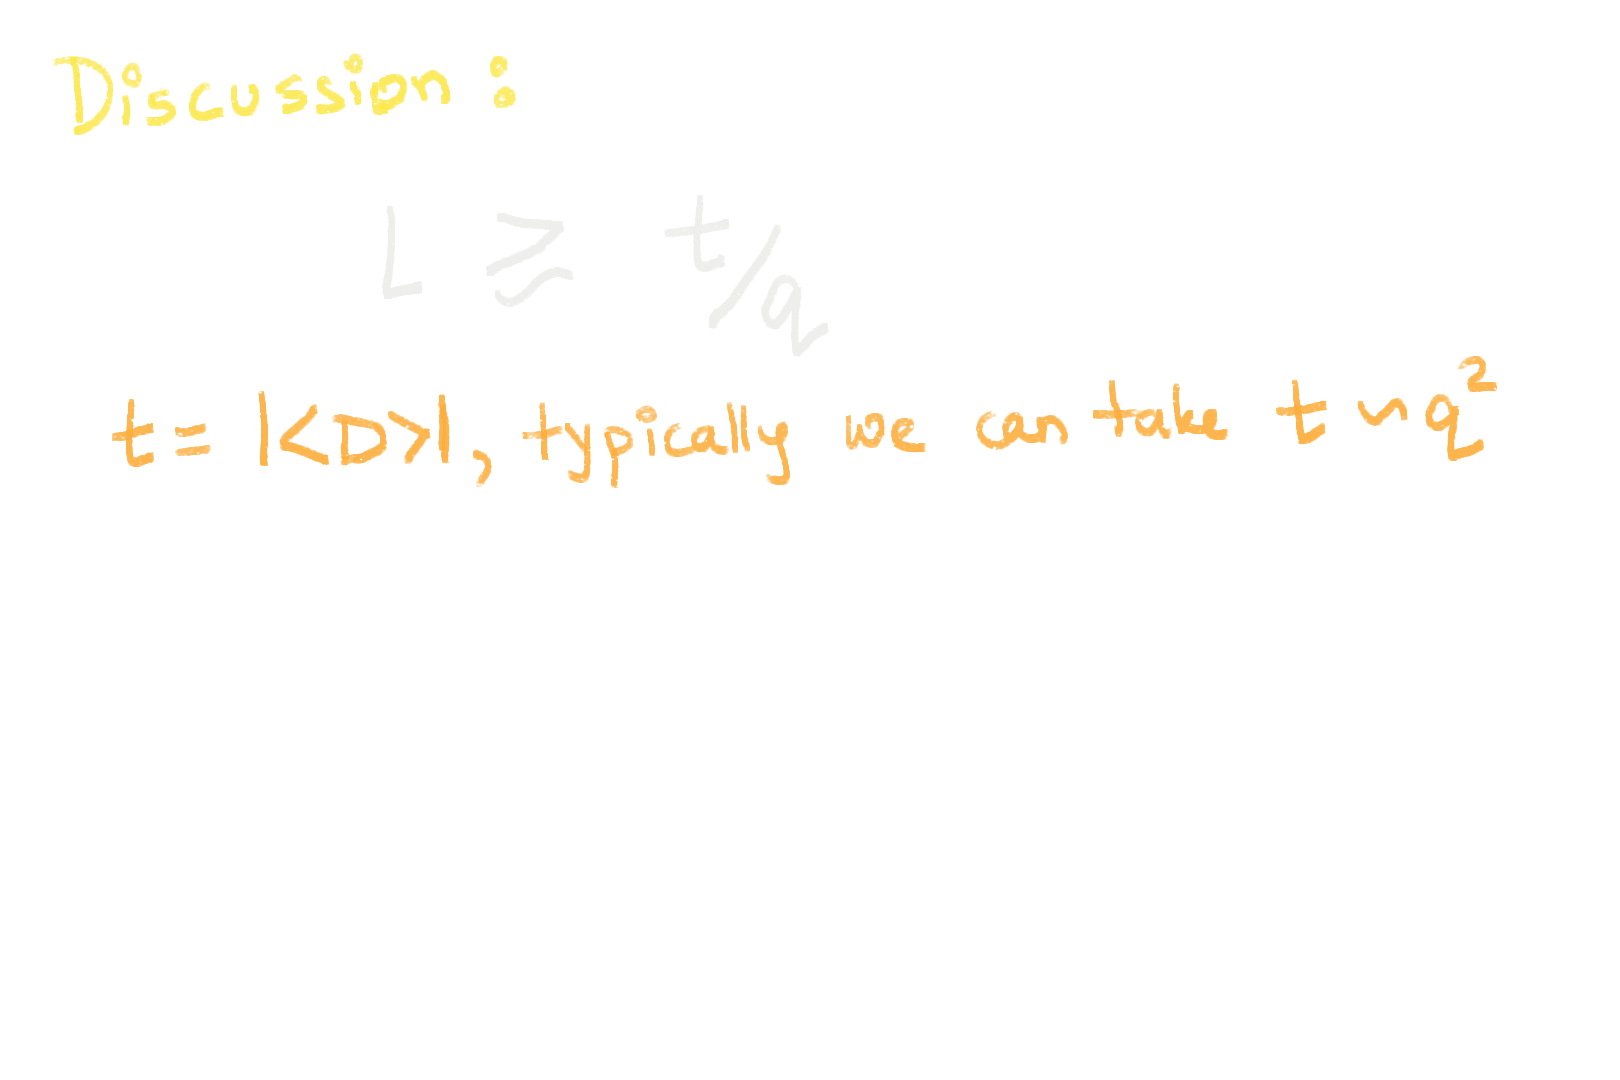 Discussion :
L ≳ t/q
t = |<D>|, typically we can take t ~ q²